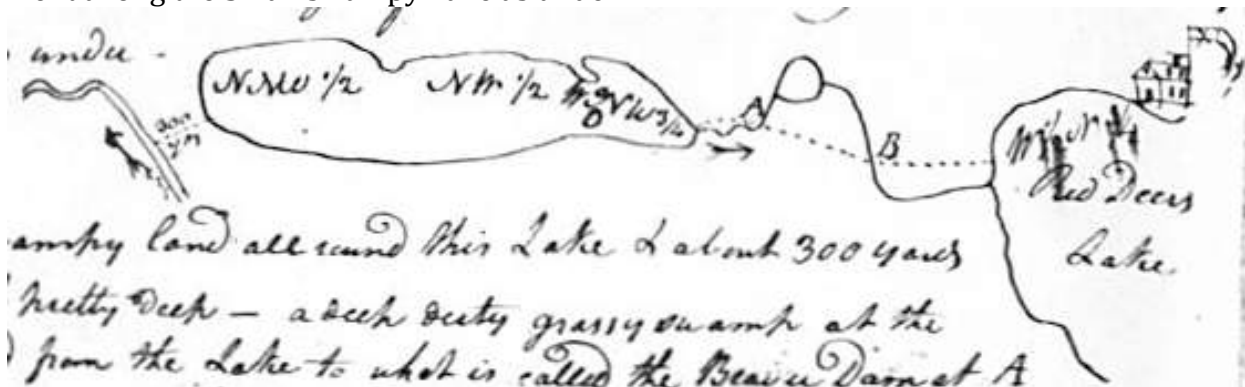 under -
NW 1/2
NW 1/2
NW 3/4
A
B
Red Deers
Lake
ampy land all round this Lake & about 300 yards
pretty deep — a deep dirty grassy swamp at the
from the Lake to what is called the Beaver Dam at A